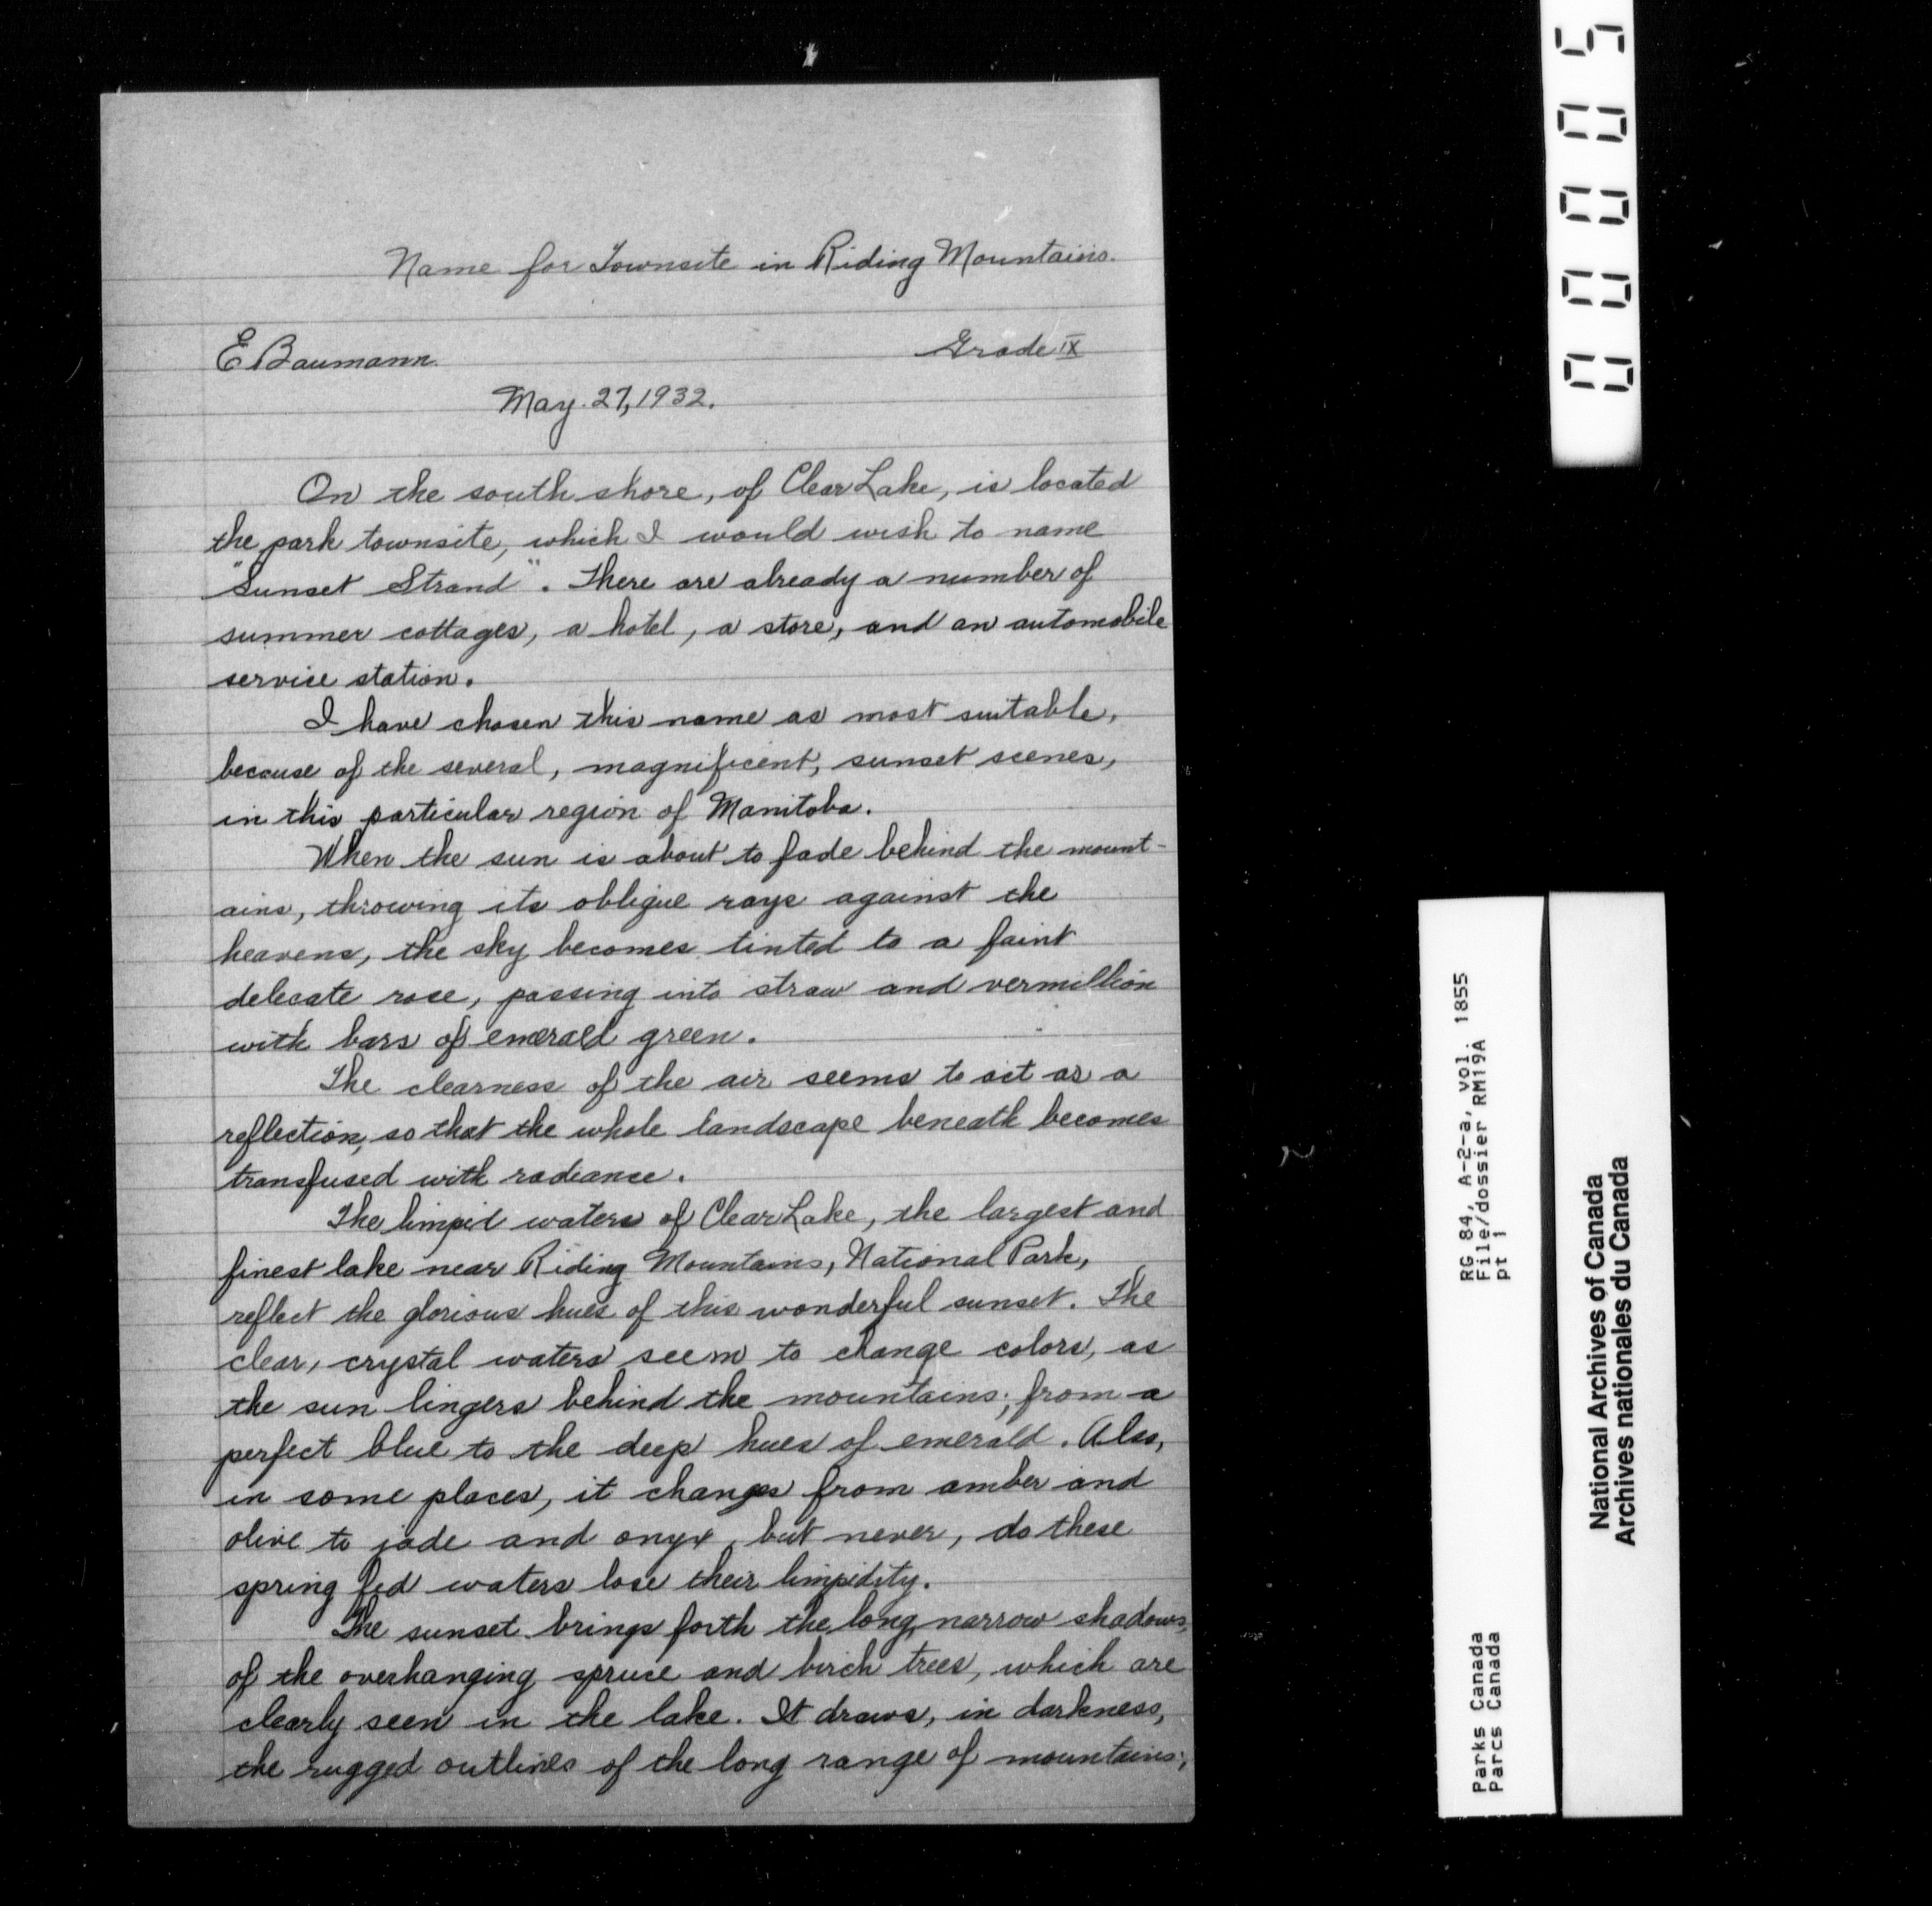 Name for Townsite in Riding Mountains.
E Baumann. Grade IX
May. 27, 1932.
On the south shore, of Clear Lake, is located
the park townsite, which I would wish to name
"Sunset Strand". There are already a number of
summer cottages, a hotel, a store, and an automobile
service station.
I have chosen this name as most suitable,
because of the several, magnificent, sunset scenes,
in this particular region of Manitoba.
When the sun is about to fade behind the mount-
ains, throwing its oblique rays against the
heavens, the sky becomes tinted to a faint
delicate rose, passing into straw and vermillion
with bars of emerald green.
The clearness of the air seems to act as a
reflection, so that the whole landscape beneath becomes
transfused with radiance.
The limpid waters of Clear Lake, the largest and
finest lake near Riding Mountains, National Park,
reflect the glorious hues of this wonderful sunset. The
clear, crystal waters seem to change colors, as
the sun lingers behind the mountains; from a
perfect blue to the deep hues of emerald. Also,
in some places, it changes from amber and
olive to jade and onyx, but never, do these
spring fed waters lose their limpidity.
The sunset brings forth the long, narrow shadows,
of the overhanging spruce and birch trees, which are
clearly seen in the lake. It draws, in darkness,
the rugged outlines of the long range of mountains;
00005
RG 84, A-2-a, vol. 1855
File/dossier RM19A
pt 1
Parks Canada
Parcs Canada
National Archives of Canada
Archives nationales du Canada